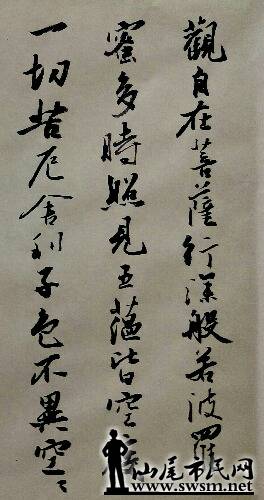 觀自在菩薩行深般若波羅
蜜多時照見五蘊皆空
一切苦厄舍利子色不異空〻
汕尾市民网
www.swsm.net